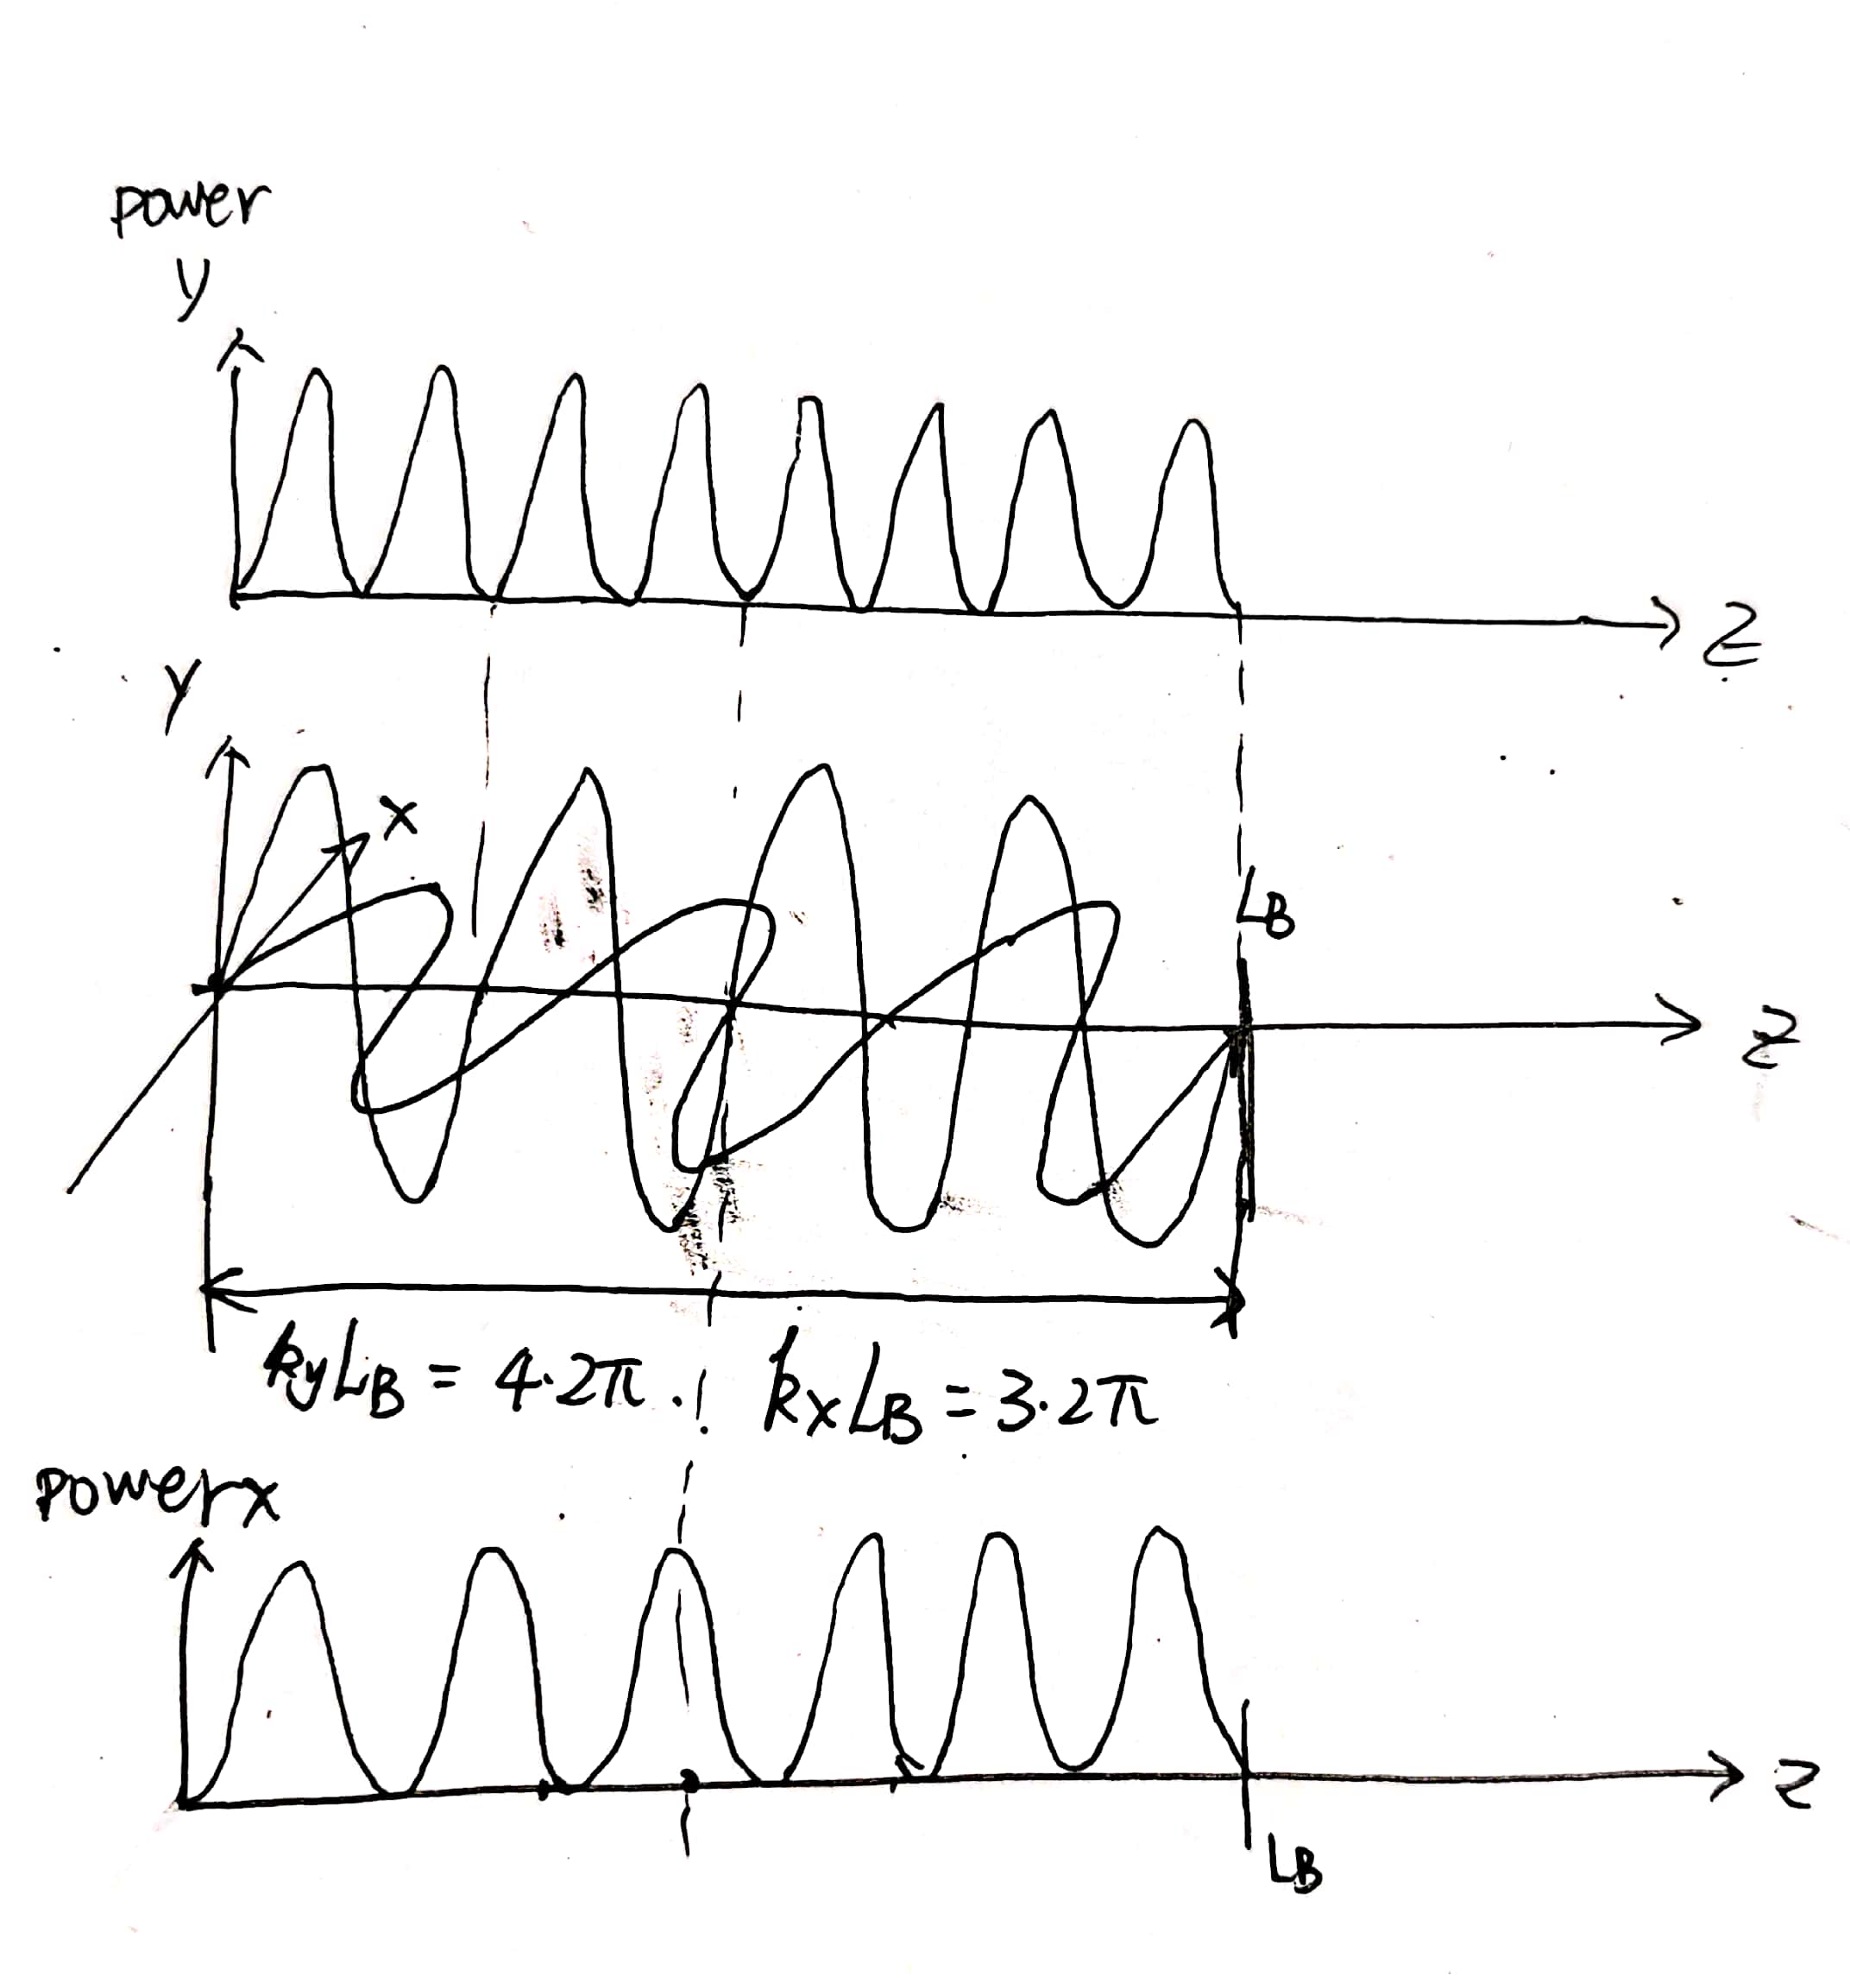 power
y
Z
y
x
LB
Z
kyLB = 4·2π
kxLB = 3·2π
powerx
Z
LB